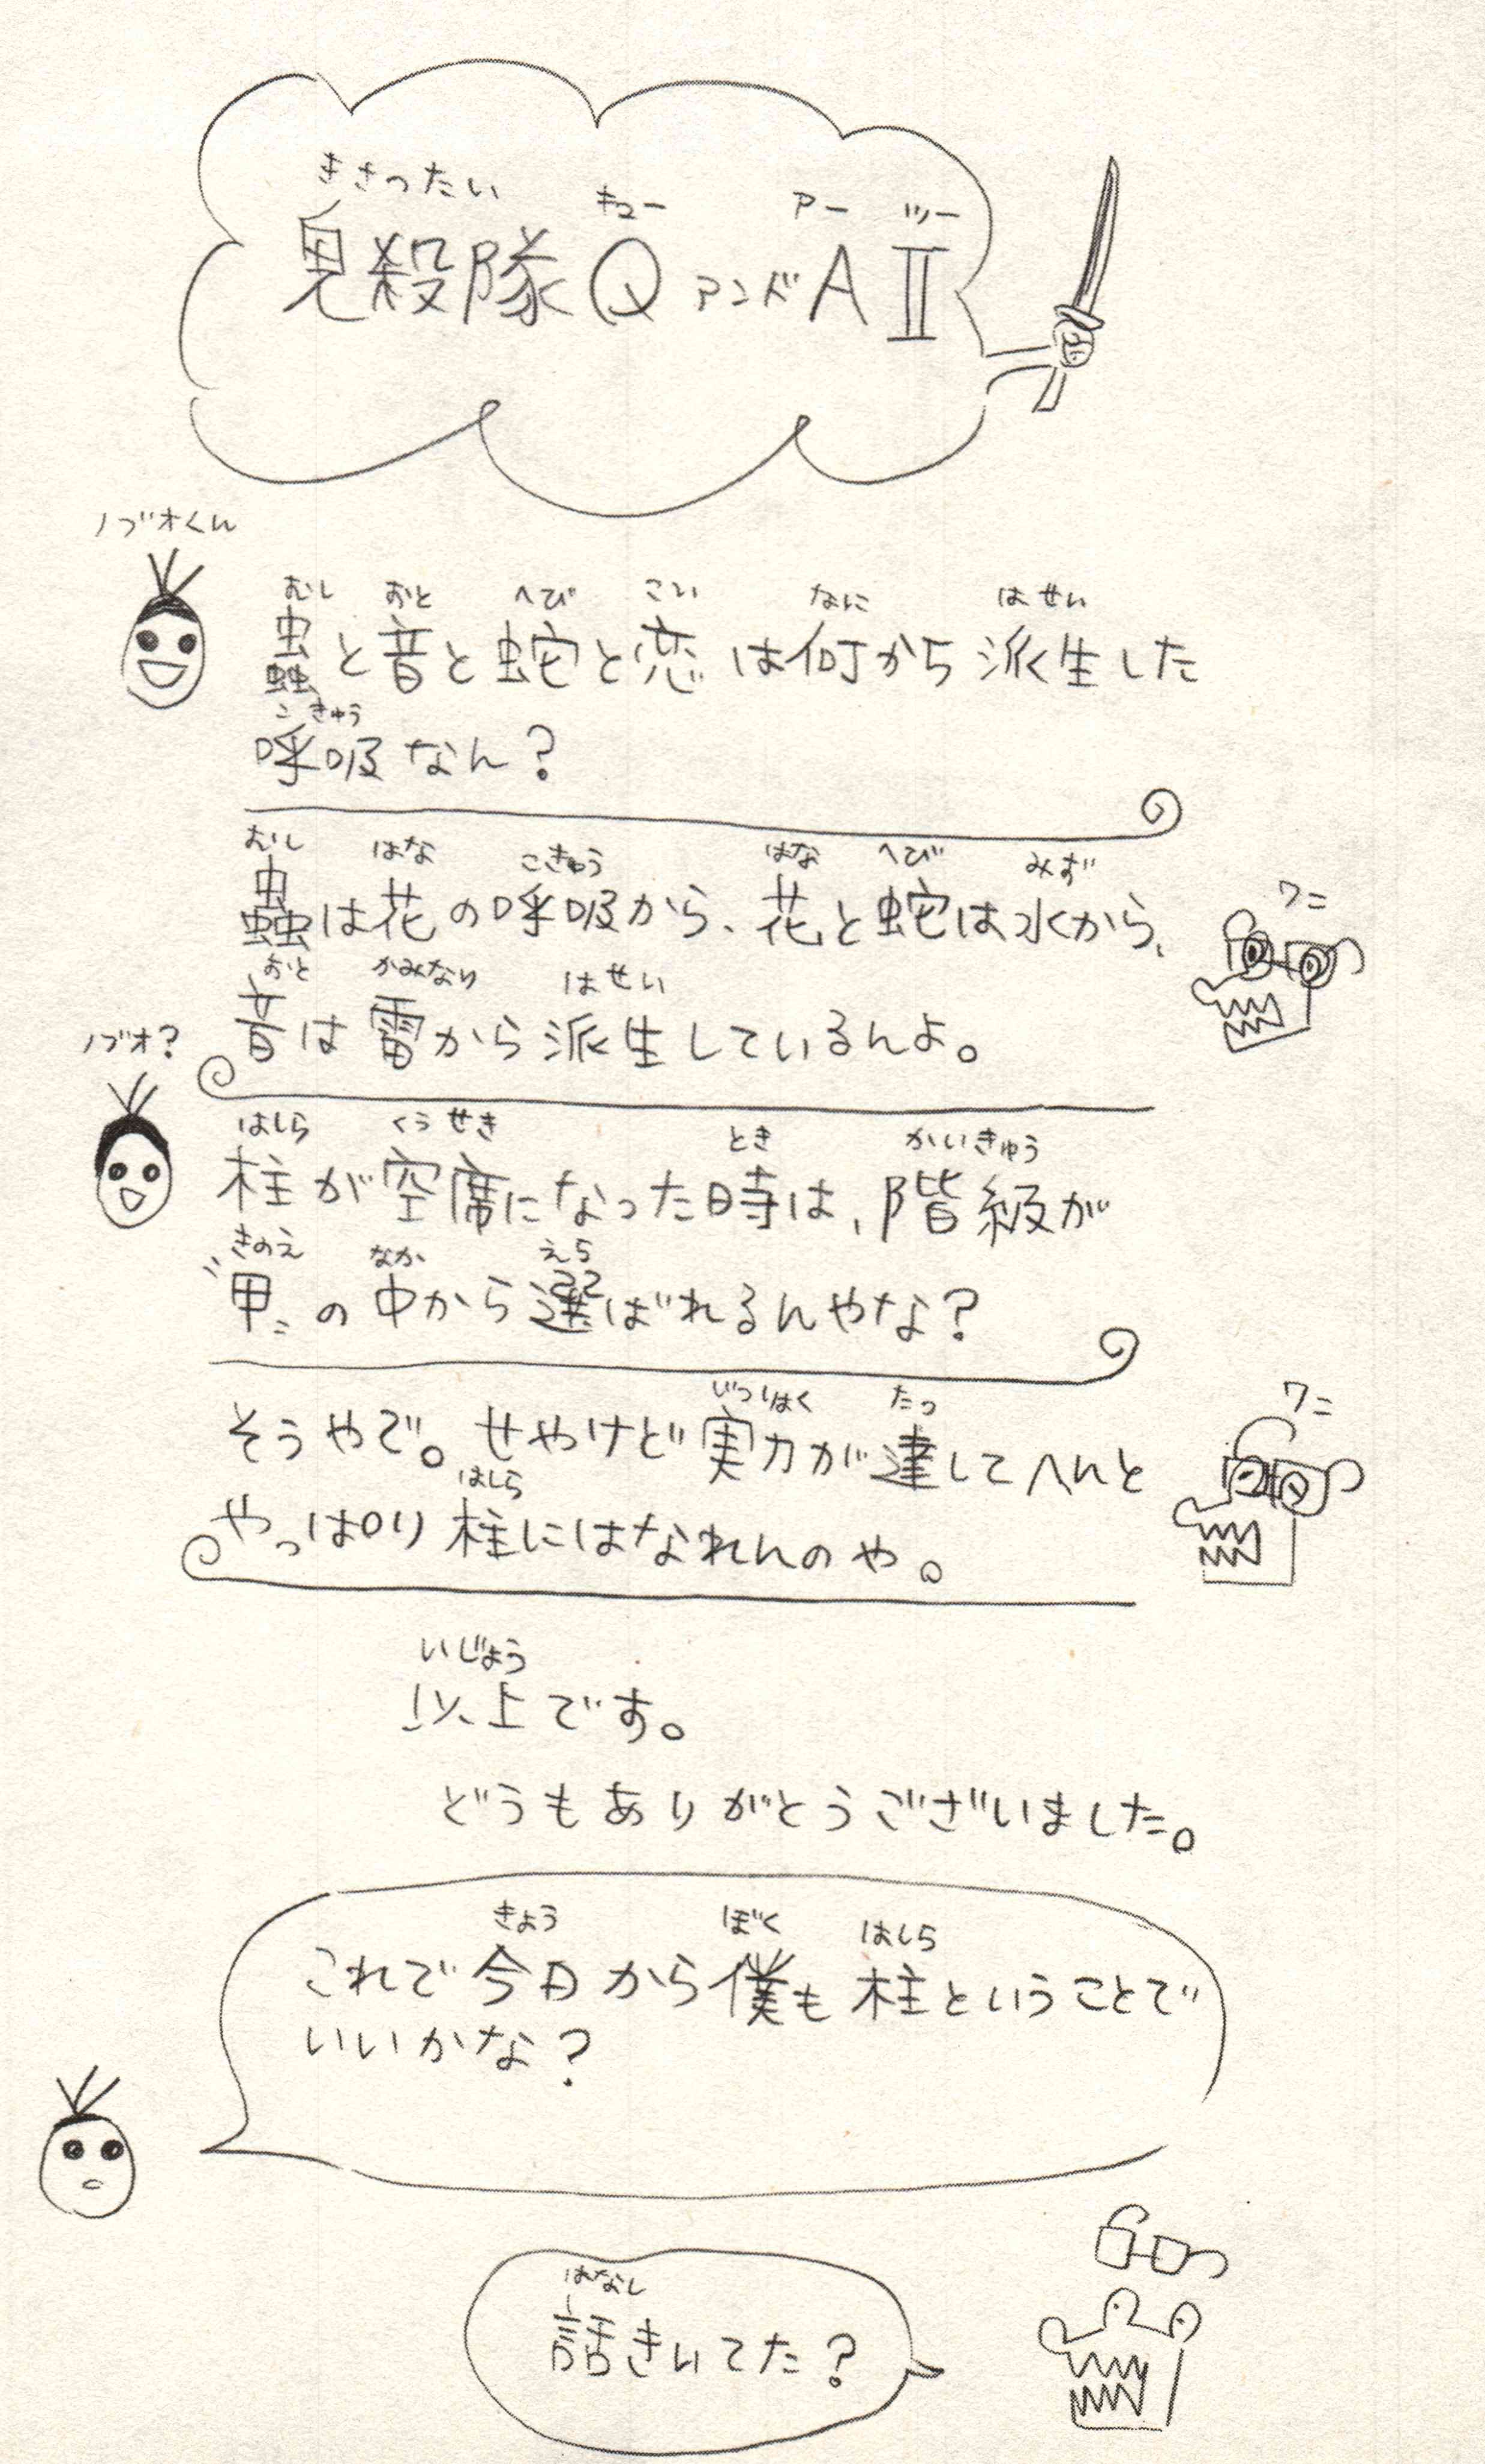 ききったい キュー アー ツー
鬼殺隊QアンドAⅡ
ノブオくん
むし おと へび こい なに はせい
蟲と音と蛇と恋は何から派生した
こきゅう
呼吸なん?
むし はな こきゅう はな へび みず
蟲は花の呼吸から、花と蛇は水から、
ワニ
おと かみなり はせい
音は雷から派生しているんよ。
ノブオ?
はしら くうせき とき かいきゅう
柱が空席になった時は、階級が
きのえ なか えら
〝甲〟の中から選ばれるんやな?
たっ
そうやで。せやけど実力が達してへんと
ワニ
はしら
やっぱり柱にはなれんのや。
いじょう
以上です。
どうもありがとうございました。
きょう ぼく はしら
これで今日から僕も柱ということで
いいかな?
はなし
話きいてた?